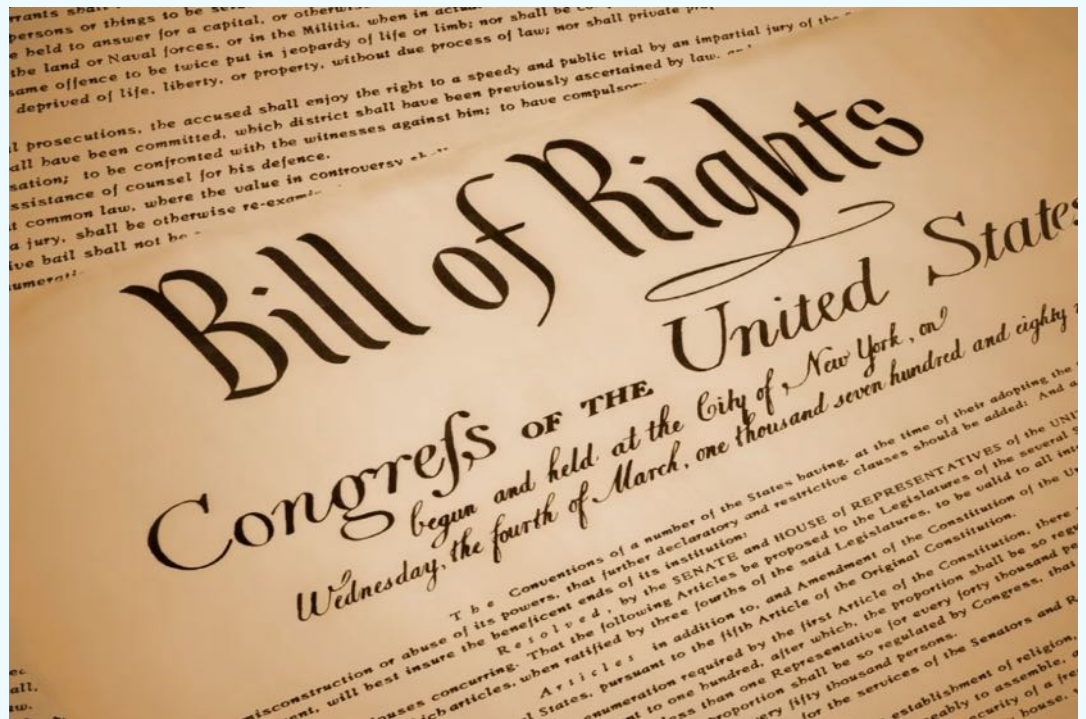 rrants shall
persons or things to be se
e held to answer for a capital, or otherwise
the land or Naval forces, or in the Militia, when in actua
same offence to be twice put in jeopardy of life or limb; nor shall be co
deprived of life, liberty, or property, without due process of law; nor shall private prop
l prosecutions, the accused shall enjoy the right to a speedy and public trial by an impartial jury of the
all have been committed, which district shall have been previously ascertained by law, and
sation; to be confronted with the witnesses against him; to have compulsory
ssistance of counsel for his defence.
t common law, where the value in controversy shall
a jury, shall be otherwise re-exami
ive bail shall not be
numerati
Bill of Rights
Congreſs OF THE United States
begun and held at the City of New York, on
Wednesday, the fourth of March, one thousand seven hundred and eighty n
The Conventions of a number of the States having, at the time of their adopting the
misconstruction or abuse of its powers, that further declaratory and restrictive clauses should be added: And a
ment, will best insure the beneficent ends of its institution:
Resolved, by the SENATE and HOUSE of REPRESENTATIVES of the UNI
ouses concurring. That the following Articles be proposed to the Legislatures of the several S
hich articles, when ratified by three fourths of the said Legislatures, to be valid to all int
Articles in addition to, and Amendment of the Constitution of the Un
l States, pursuant to the fifth Article of the Original Constitution.
enumeration required by the first Article of the Constitution, there
nt to one hundred, after which, the proportion shall be so regu
less than one Representative for every forty thousand pe
proportion shall be so regulated by Congress, that
very fifty thousand persons.
for the services of the Senators and R
establishment of religion,
eably to assemble, a
curity of a fre
house, w
all,
aw.